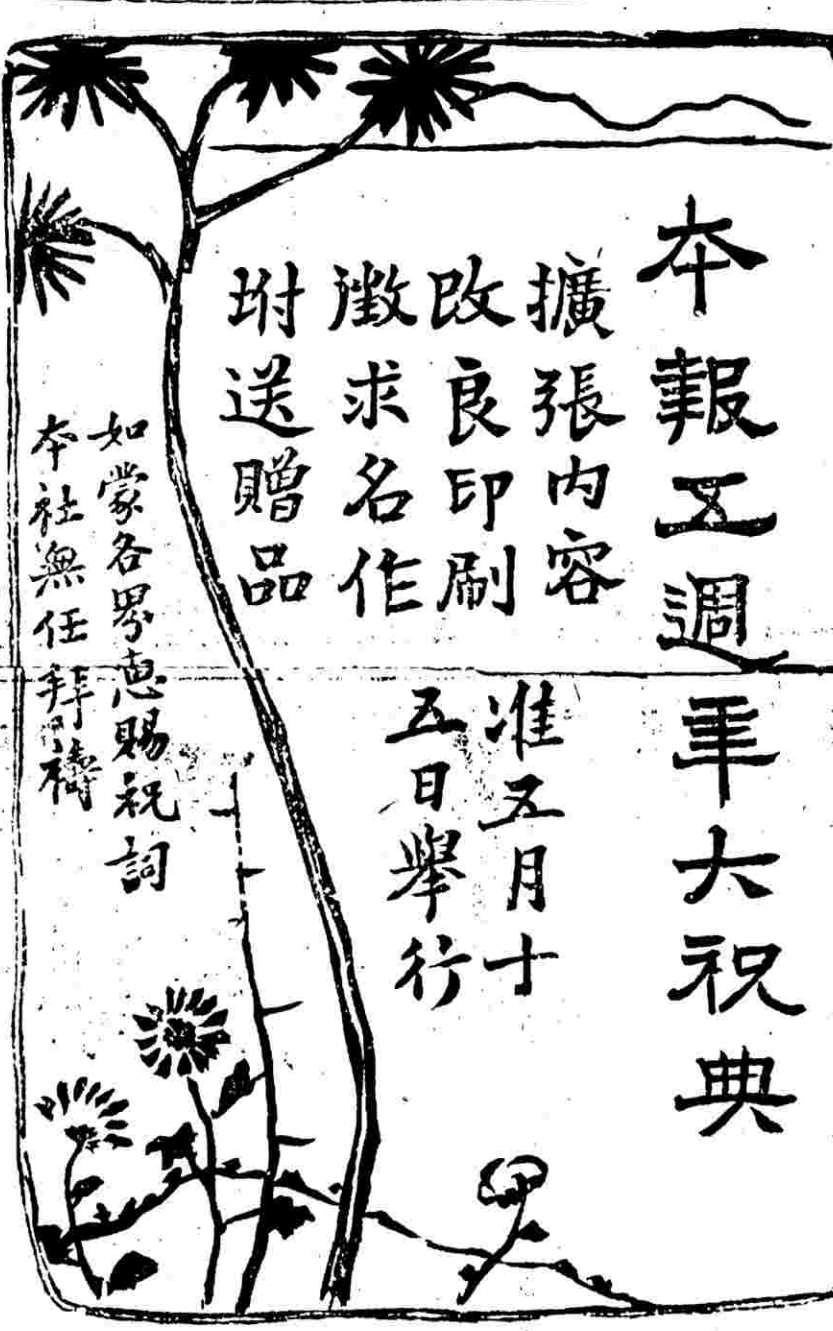 本報五週年大祝典
擴張內容
改良印刷
徵求名作
坿送贈品
准五月十
五日舉行
如蒙各界惠賜祝詞
本社無任拜禱